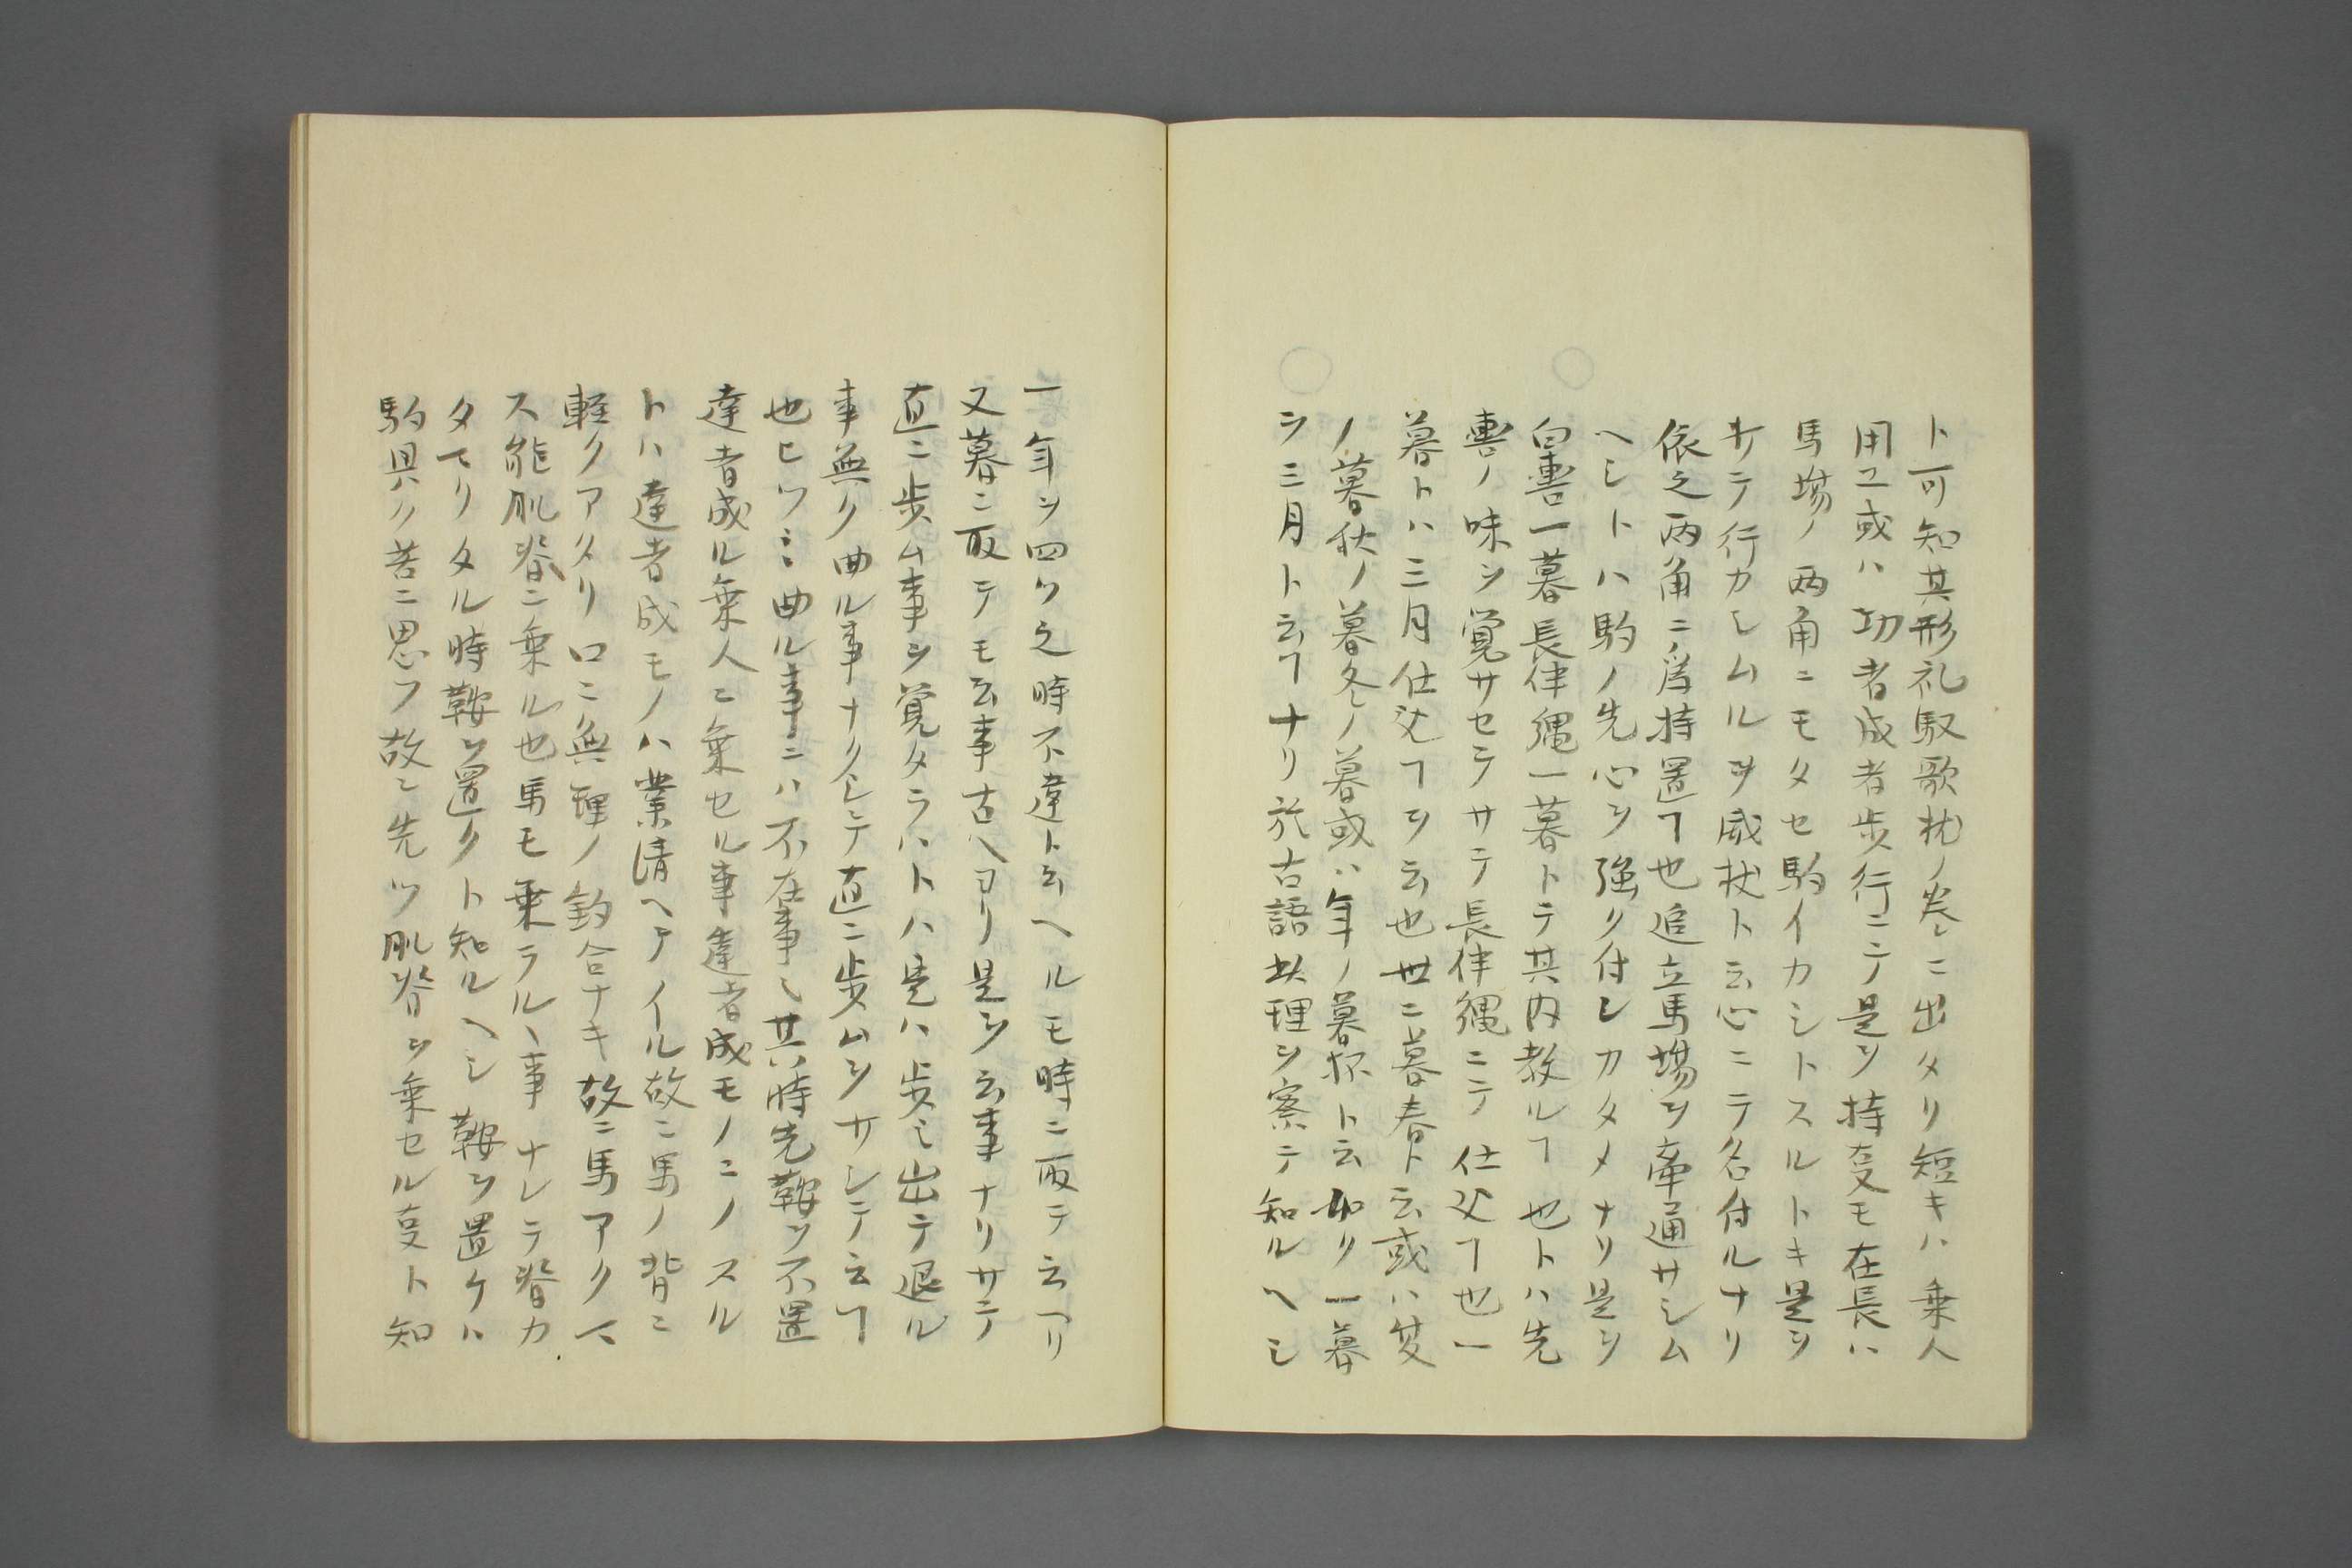 ト可知其形礼馭歌枕ノ巻ニ出タリ短キハ乗人
用ユ或ハ功者成者歩行ニテ是ヲ持㕝モ在長ハ
馬場ノ両角ニモタセ駒イカシトスルトキ是ヲ
サテ行カシムルヲ威杖ト云心ニテ名付ルナリ
依之両角ニ為持置ヿ也追立馬場ヲ牽通サシム
ヘシトハ駒ノ先心ヲ強ク付シカタメナリ是ヲ
白轡一暮長律縄一暮トテ其内教ルヿ也トハ先
轡ノ味ヲ覚サセテサテ長律縄ニテ仕込ヿ也一
暮トハ三月仕込ヿヲ云也世ニ暮春ト云或ハ夏
ノ暮秋ノ暮冬ノ暮或ハ年ノ暮抔ト云如ク一暮
ヲ三月ト云ヿナリ於古語以理ヲ案テ知ルヘシ
一年ヲ四ツ之時不違ト云ヘルモ時ニ取テ云ヘリ
又暮ニ取テモ云事古ヘヨリ是ヲ云事ナリサテ
直ニ歩ム事ヲ覚タラハトハ是ハ歩ミ出テ退ル
事無ク曲ル事ナクシテ直ニ歩ムヲサシテ云ヿ
也ヒツミ曲ル事ニハ不在事ニ其時先鞍ヲ不置
達者成ル乗人ニ乗セル事達者成モノニノスル
トハ達者成モノハ業情ヘアイル故ニ馬ノ背ニ
軽クアタリ口ニ無理ノ釣合ナキ故ニ馬アクマ
ス能肌脊ニ乗ル也馬モ乗ラルヽ事ナレテ脊カ
タマリタル時鞍ヲ置クト知ルヘシ鞍ヲ置ケハ
駒具ノ苦ニ思フ故ニ先ツ肌脊ヲ乗セル㕝ト知